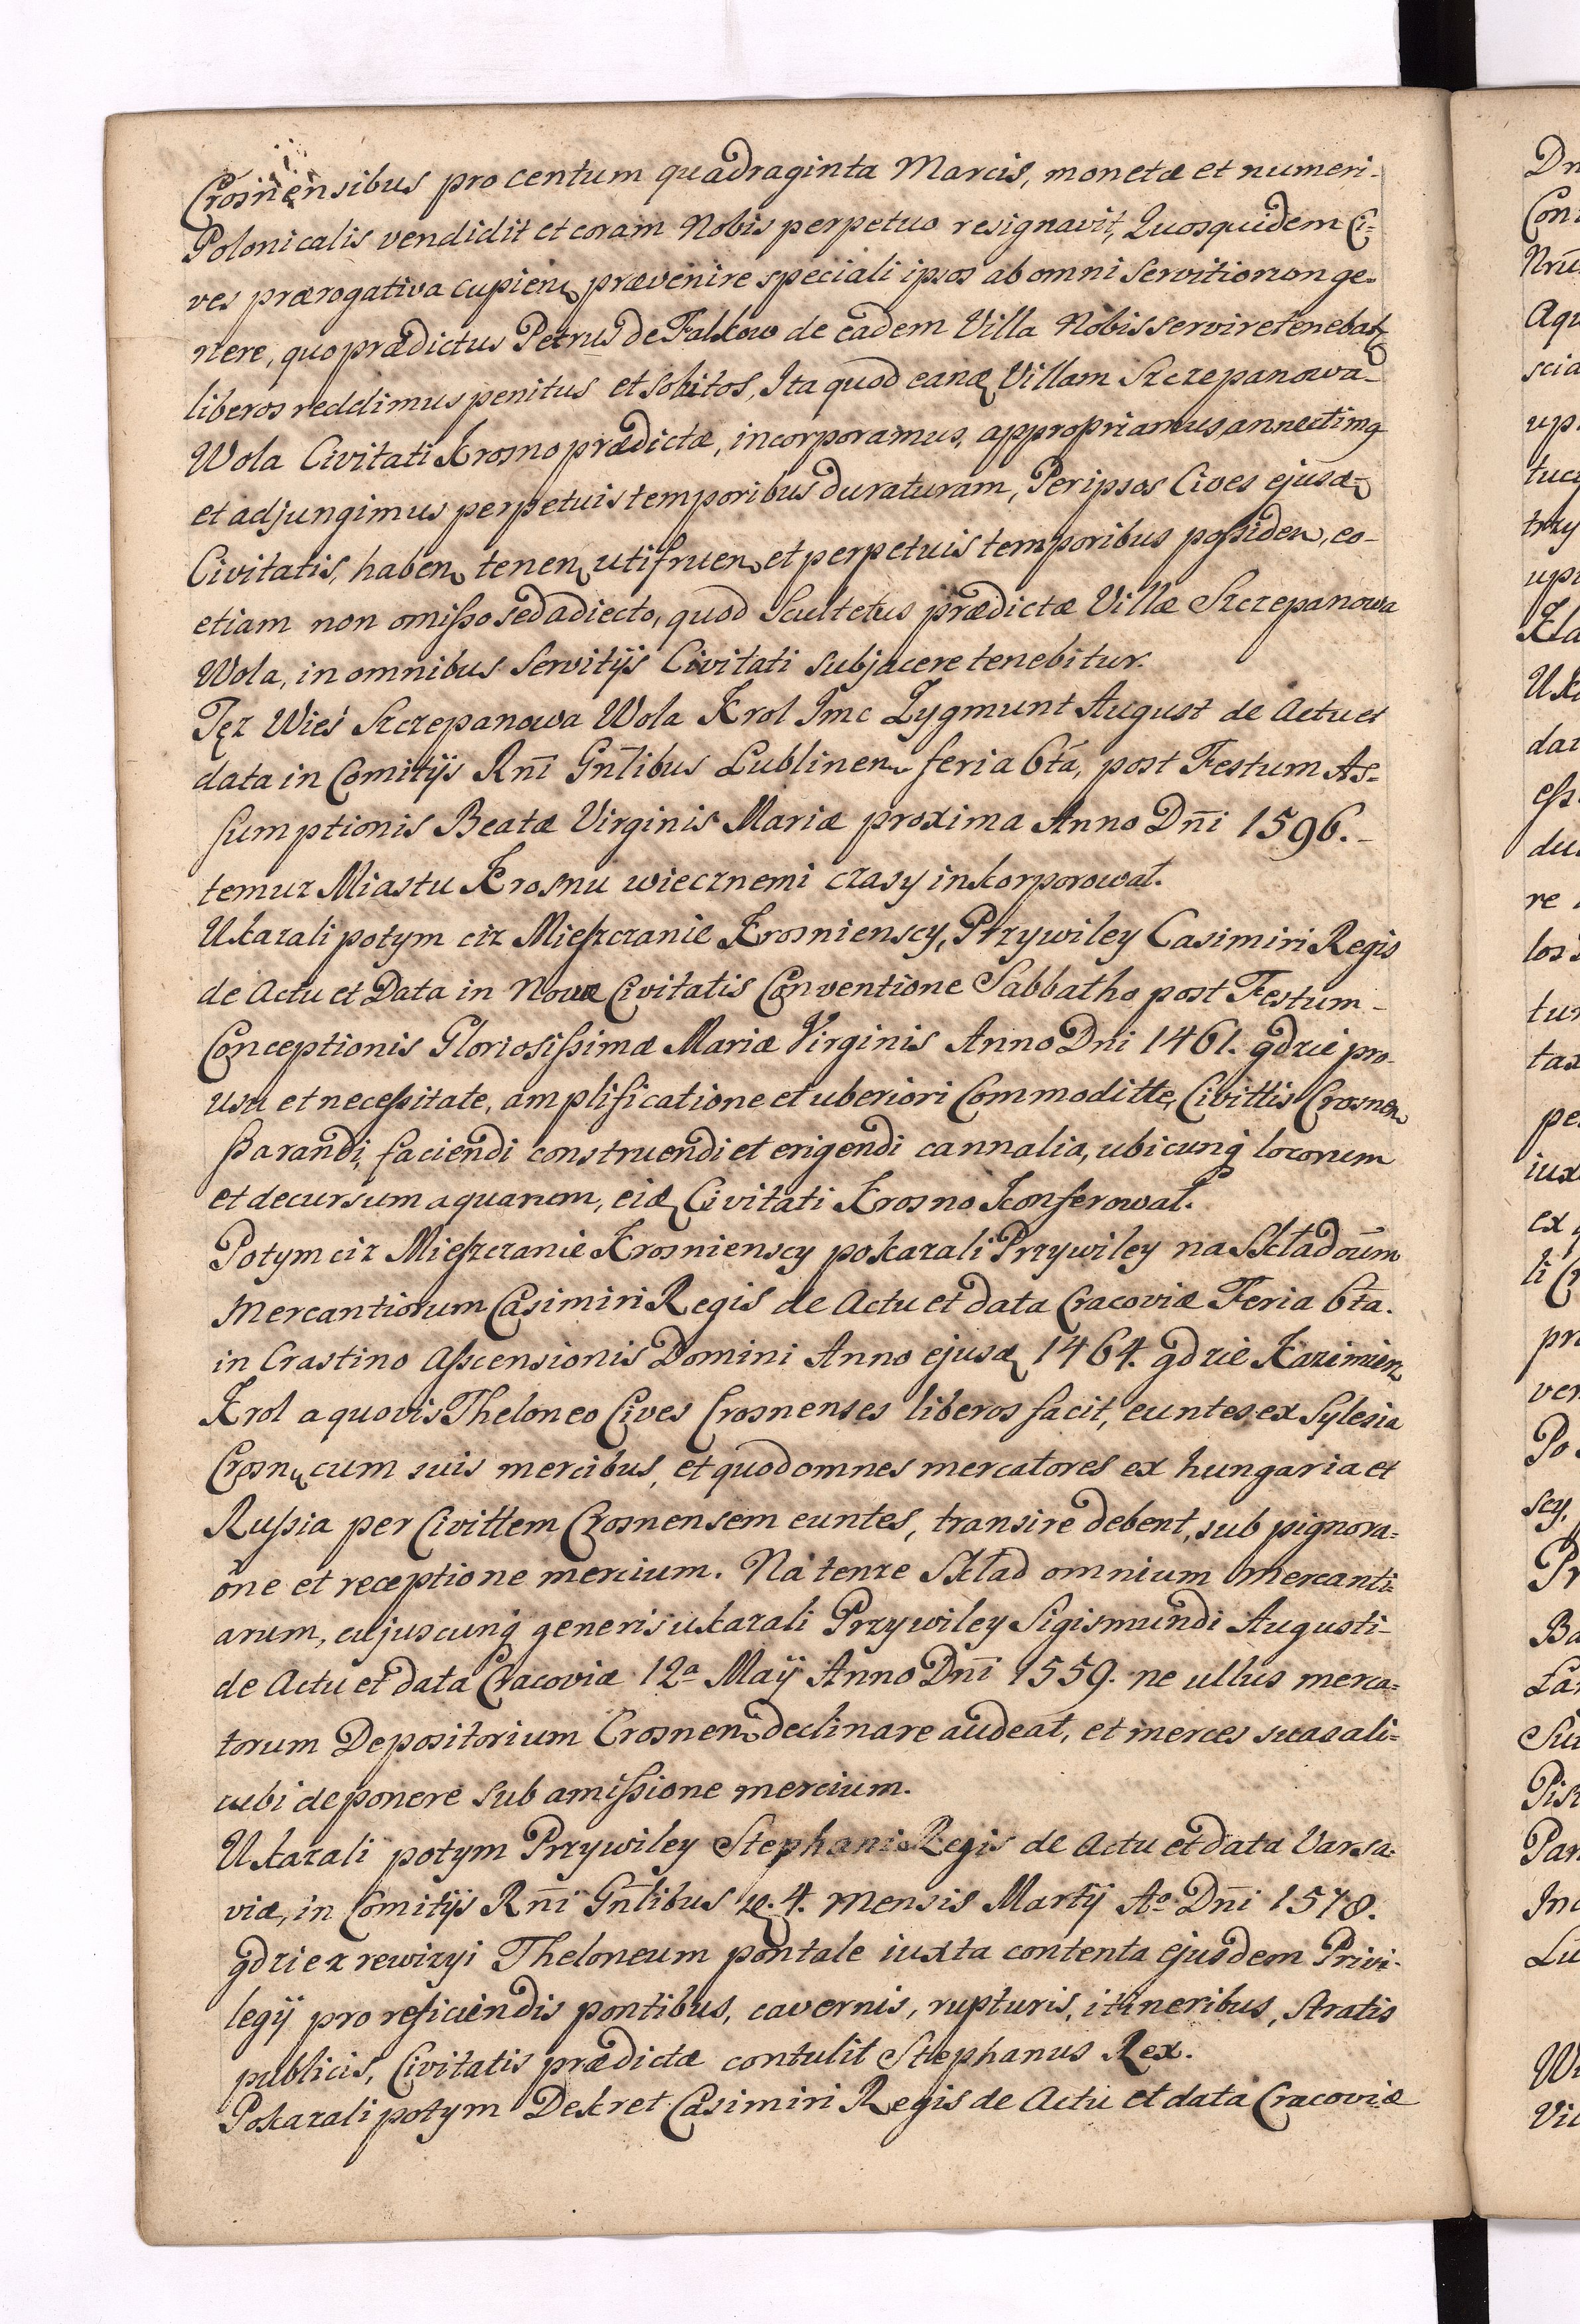 Crosnensibus pro centum quadraginta Marcis, monetæ et numeri-
Polonicalis vendidit et coram Nobis perpetuo resignavit, Quosquidem Ci=
ves prærogativa cupien prævenire speciali ipsos ab omni Servitiorum ge-
nere, quo prædictus Petrus de Falkow de eadem Villa Nobis servire tenebat
liberos reddimus penitus et solutos, Ita quod eanq Villam Szczepanowa-
Wola Civitati Krosno prædictæ, incorporamus, appropriamus annectimq
et adjungimus perpetuis temporibus duraturam, Per ipsos Cives ejusd
Civitatis, haben tenen utifruen et perpetuis temporibus possiden, eo-
etiam non omisso sed adiecto, quod Scultetus prædictæ Villæ Szczepanowa
Wola, in omnibus Servitijs Civitati subjacere tenebitur.
Tęz Wieś Szczepanowa Wola Krol Jmc Zygmunt August de Actu et
data in Comitijs Rnī Gnlibus Lublinen feria 6tá, post Festum As-
sumptionis Beatæ Virginis Mariæ proxima Anno Dñi 1596.-
temuz Miastu Krosnu wiecznemi czasy inkorporował.
Ukazali potym ciz Mieszczanie Krosnienscy, Przywiley Casimiri Regis
de Actu et Data in Novæ Civitatis Conventione Sabbatho post Festum-
Conceptionis Gloriosissimæ Mariæ Virginis Anno Dni 1461. gdzie pro-
usu et necessitate, amplificatione et uberiori Commoditte, Civittis Crosnen
parandi, faciendi construendi et erigendi cannalia, ubicunq locorum
et decursum aquarum, eid Civitati Krosno konferował.
Potym ciz Mieszczanie Krosnienscy pokazali Przywiley na Skład oūm
Mercantiorum Casimiri Regis de Actu et data Cracoviæ Feria 6ta.
in Crastino Asscensionis Domini Anno ejusd 1464. gdzie Kazimierz
Krol a quovis Theloneo Cives Crosnenses liberos facit, euntes ex Sylesia
Crosn cum suis mercibus, et quod omnes mercatores ex hungaria et
Russia per Civittem Crosnensem euntes, transire debent, sub pignora=
õne et receptione mercium. Na tenze Skład omnium mercanti-
arum, cujuscunq generis ukazali Przywiley Sigismundi Augusti-
de Actu et data Cracoviæ 12a Maij Anno Dñi 1559. ne ullus merca=
torum Depositorium Crosnen declinare audeat, et merces suas ali=
cubi deponere sub amissione mercium.
Ukazali potym Przywiley Stephani Regis de Actu et data Varsa-
viæ, in Comitijs Rnī Gnlibus 4. Mensis Martij Ao Dñi 1578.
gdzie z rewizyi Theloneum pontale iuxta contenta ejusdem Privi-
legij pro reficiendis pontibus, cavernis, rupturis, itineribus, Stratis
publicis, Civitatis prædictæ contulit Stephanus Rex.
Pokazali potym Dekret Casimiri Regis de Actu et data Cracoviæ